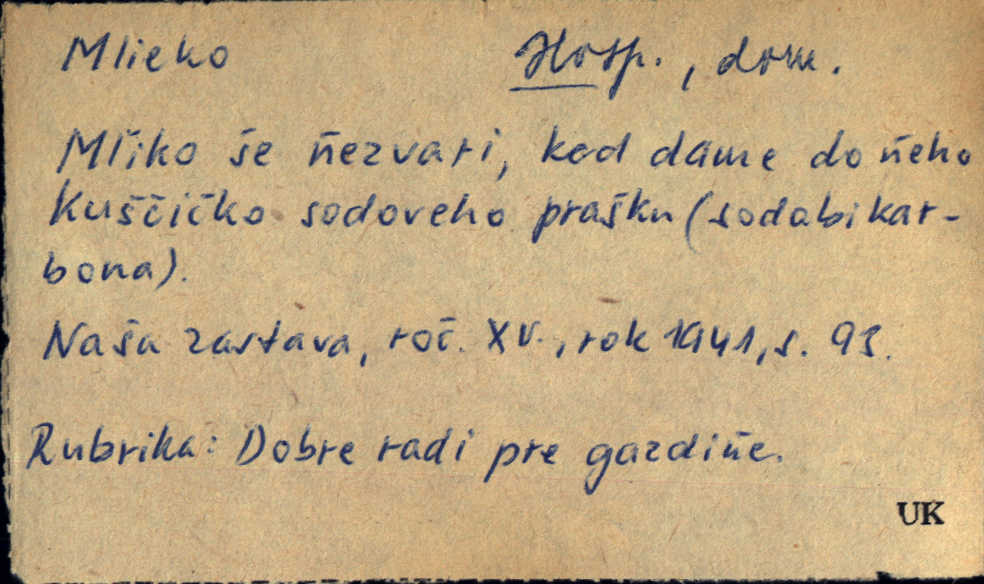 Mlieko Hosp., dom.
Mľiko še ňezvari, ked dame do ňeho
kuščičko sodoveho prašku (sodabikar-
bona).
Naša zastava, roč. XV., rok 1941, s. 93.
Rubrika: Dobre radi pre gazdiňe.
UK